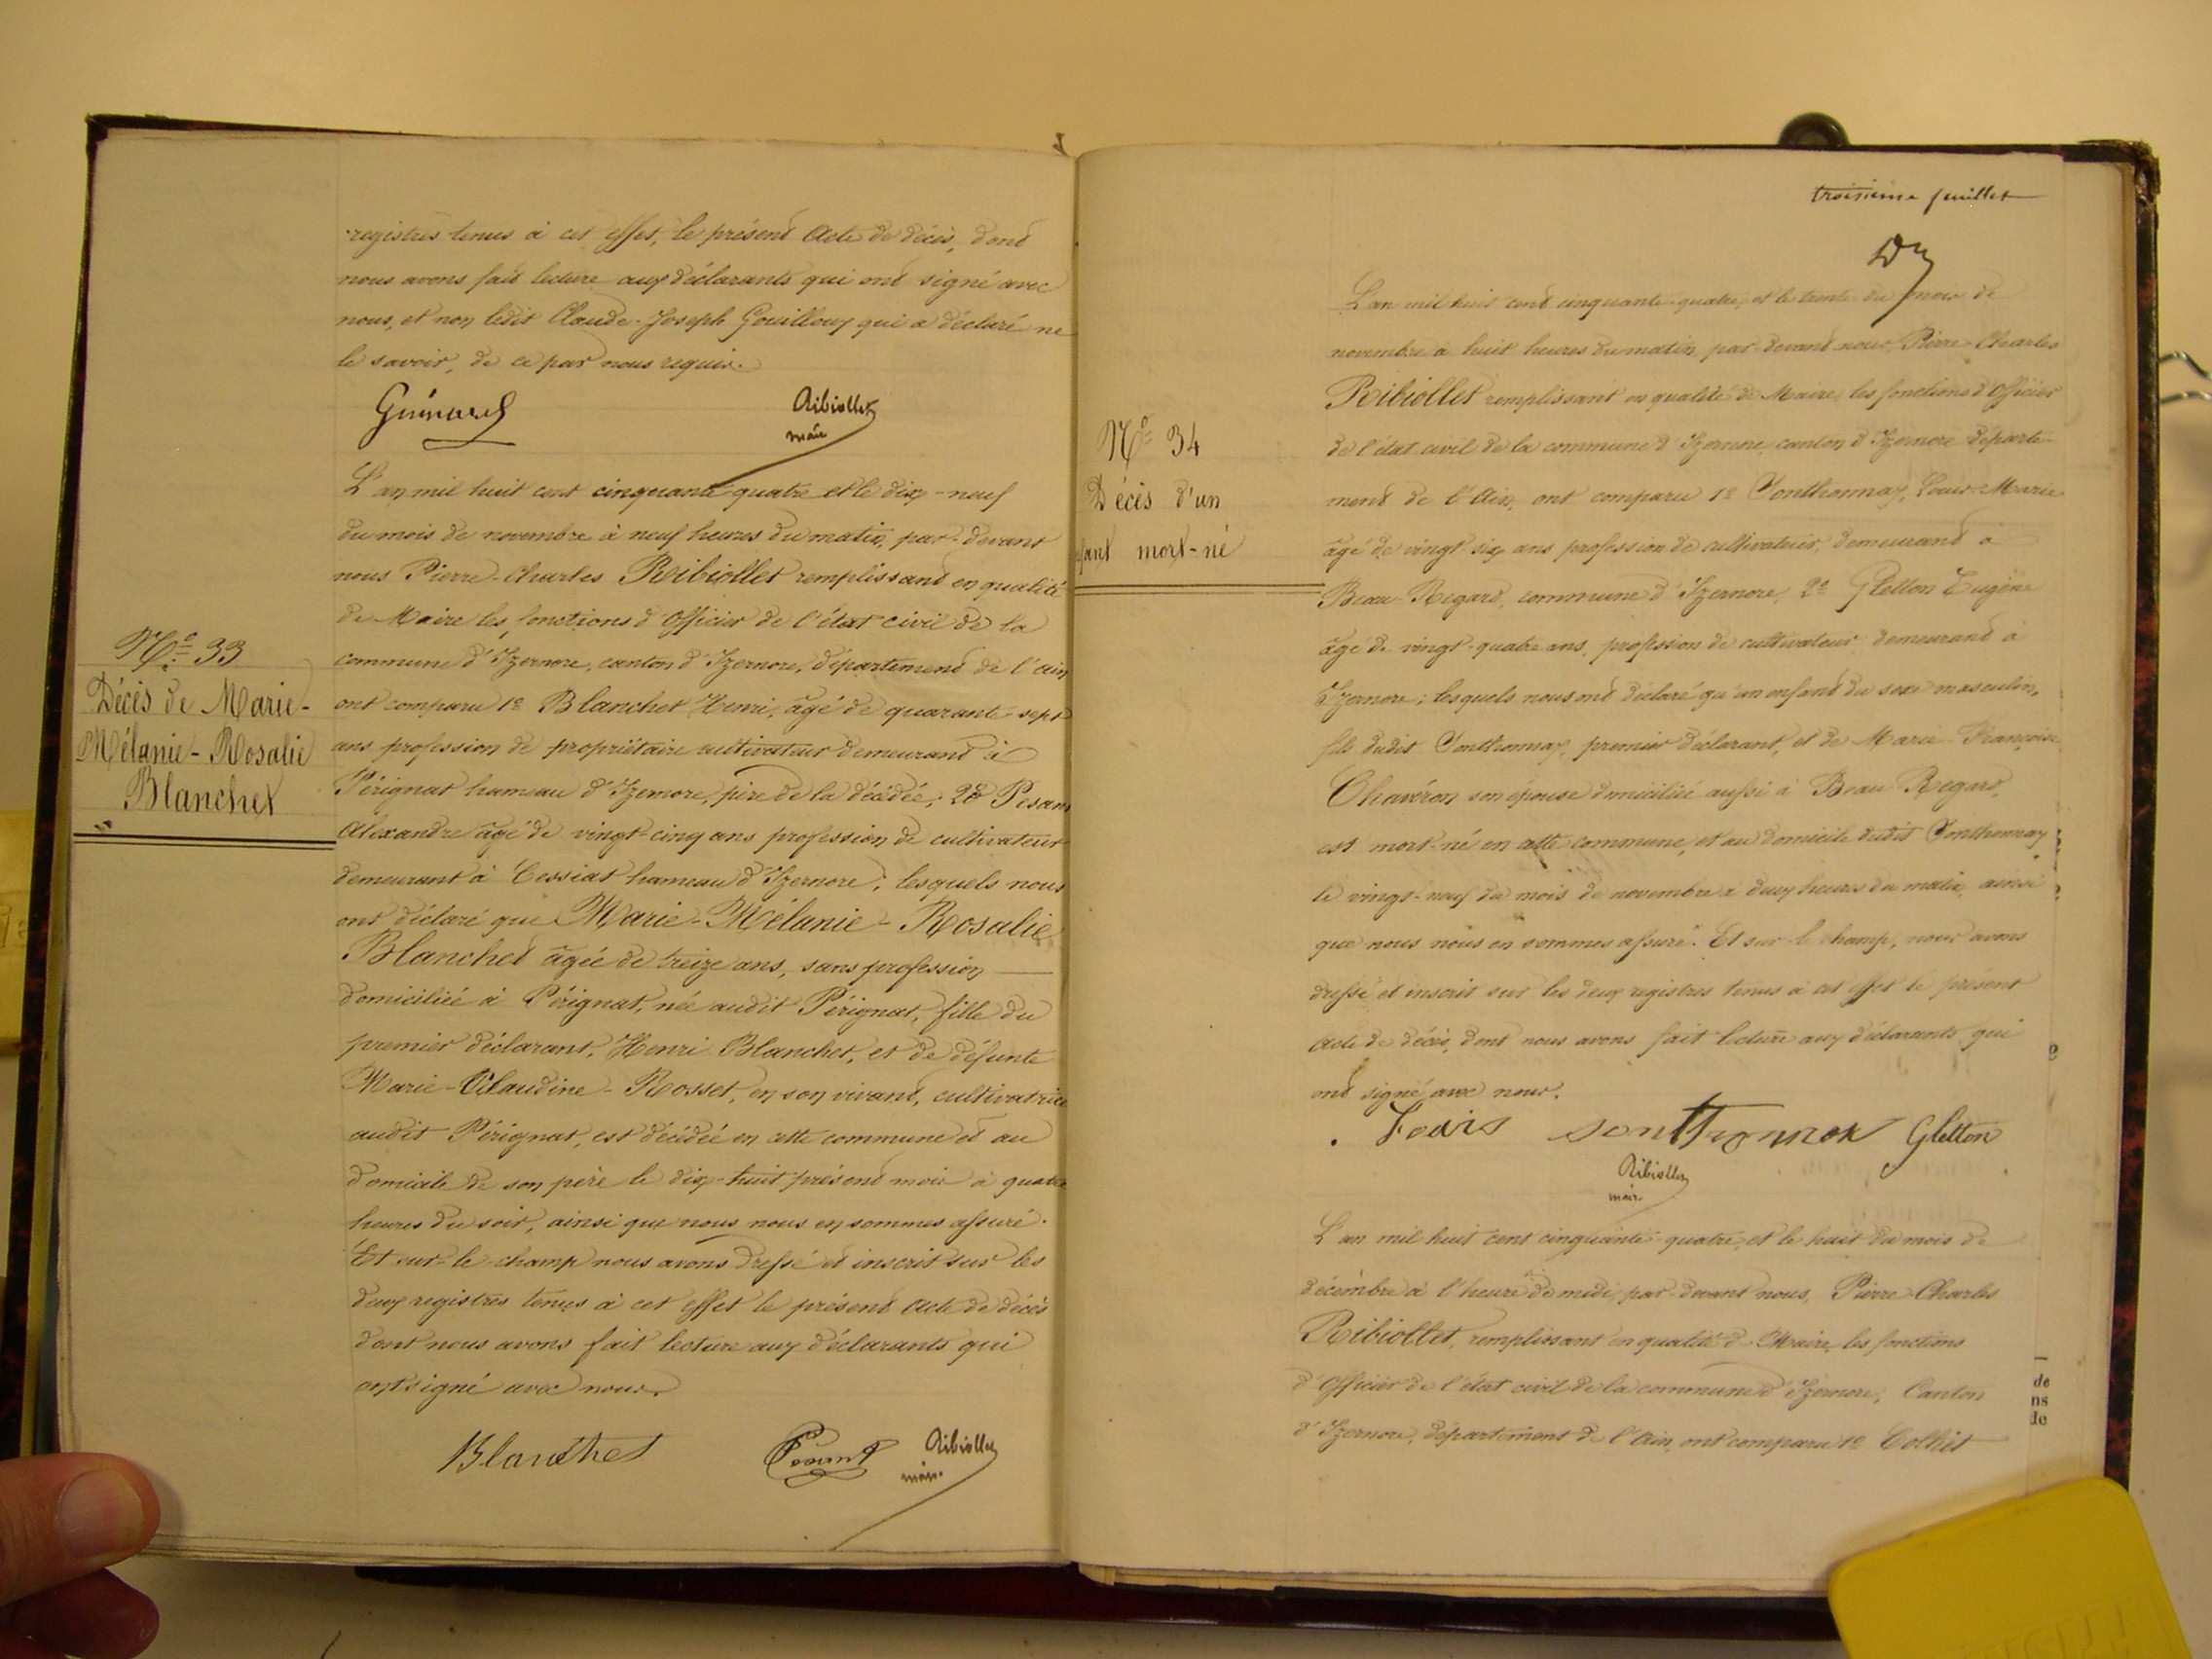 registres tenus à cet effet, le présent Acte de décès, dont
nous avons fait lecture aux déclarants qui ont signé avec
nous, et non ledit Claude-Joseph Gouilloux qui a déclaré ne
le savoir, de ce par nous requis.
Ribiollet
maire
N° 33
Décès de Marie-
Mélanie-Rosalie
Blanchet
L'an mil huit cent cinquante quatre et le dix-neuf
du mois de novembre à neuf heures du matin, par-devant
nous Pierre-Charles Ribiollet remplissant en qualité
de Maire les fonctions d'Officier de l'état civil de la
commune d'Izernore, canton d'Izernore, département de l'ain
ont comparu 1° Blanchet Henri, âgé de quarante-sept
ans profession de propriétaire cultivateur demeurant à
Pérignat hameau d'Izernore, père de la décédée, 2° Pesant
Alexandre âgé de vingt-cinq ans profession de cultivateur
demeurant à Tessiat hameau d'Izernore; lesquels nous
ont déclaré que Marie-Mélanie-Rosalie
Blanchet âgée de treize ans, sans profession
domiciliée à Pérignat, née audit Pérignat, fille du
premier déclarant, Henri Blanchet, et de défunte
Marie-Claudine-Rosset, en son vivant, cultivatrice
audit Pérignat, est décédée en cette commune et au
domicile de son père le dix-huit présent mois à quatre
heures du soir, ainsi que nous nous en sommes assuré.
Et sur-le-champ nous avons dressé et inscrit sur les
deux registres tenus à cet effet le présent Acte de décès
dont nous avons fait lecture aux déclarants qui
ont signé avec nous.
Blanchet Pesant Ribiollet
maire
troisième feuillet
N° 34
Décès d'un
enfant mort-né
L'an mil huit cent cinquante-quatre, et le trente du mois de
novembre à huit heures du matin, par-devant nous, Pierre-Charles
Ribiollet remplissant en qualité de Maire, les fonctions d'Officier
de l'état civil de la commune d'Izernore, canton d'Izernore départe-
ment de l'Ain, ont comparu 1° Sonthonnax, Louis-Marie
âgé de vingt-six ans profession de cultivateur, demeurant à
Beau-Regard, commune d'Izernore, 2° Gletton Eugène
âgé de vingt-quatre ans, profession de cultivateur demeurant à
Izernore; lesquels nous ont déclaré qu'un enfant du sexe masculin,
fils dudit Sonthonnax, premier déclarant, et de Marie-Françoise
Chavéron son épouse domiciliée aussi à Beau-Regard,
est mort-né en cette commune, et au domicile dudit Sonthonnax
le vingt-neuf du mois de novembre à deux heures du matin, ainsi
que nous nous en sommes assuré. Et sur-le-champ, nous avons
dressé et inscrit sur les deux registres tenus à cet effet le présent
Acte de décès, dont nous avons fait lecture aux déclarants qui
ont signé avec nous.
Louis sontthonnax Gletton
Ribiollet
maire
L'an mil huit cent cinquante-quatre, et le huit du mois de
décembre à l'heure de midi, par-devant nous, Pierre-Charles
Ribiollet, remplissant en qualité de Maire, les fonctions
d'Officier de l'état civil de la commune d'Izernore, Canton
d'Izernore, département de l'Ain, ont comparu 1° Collet
de
ns
de